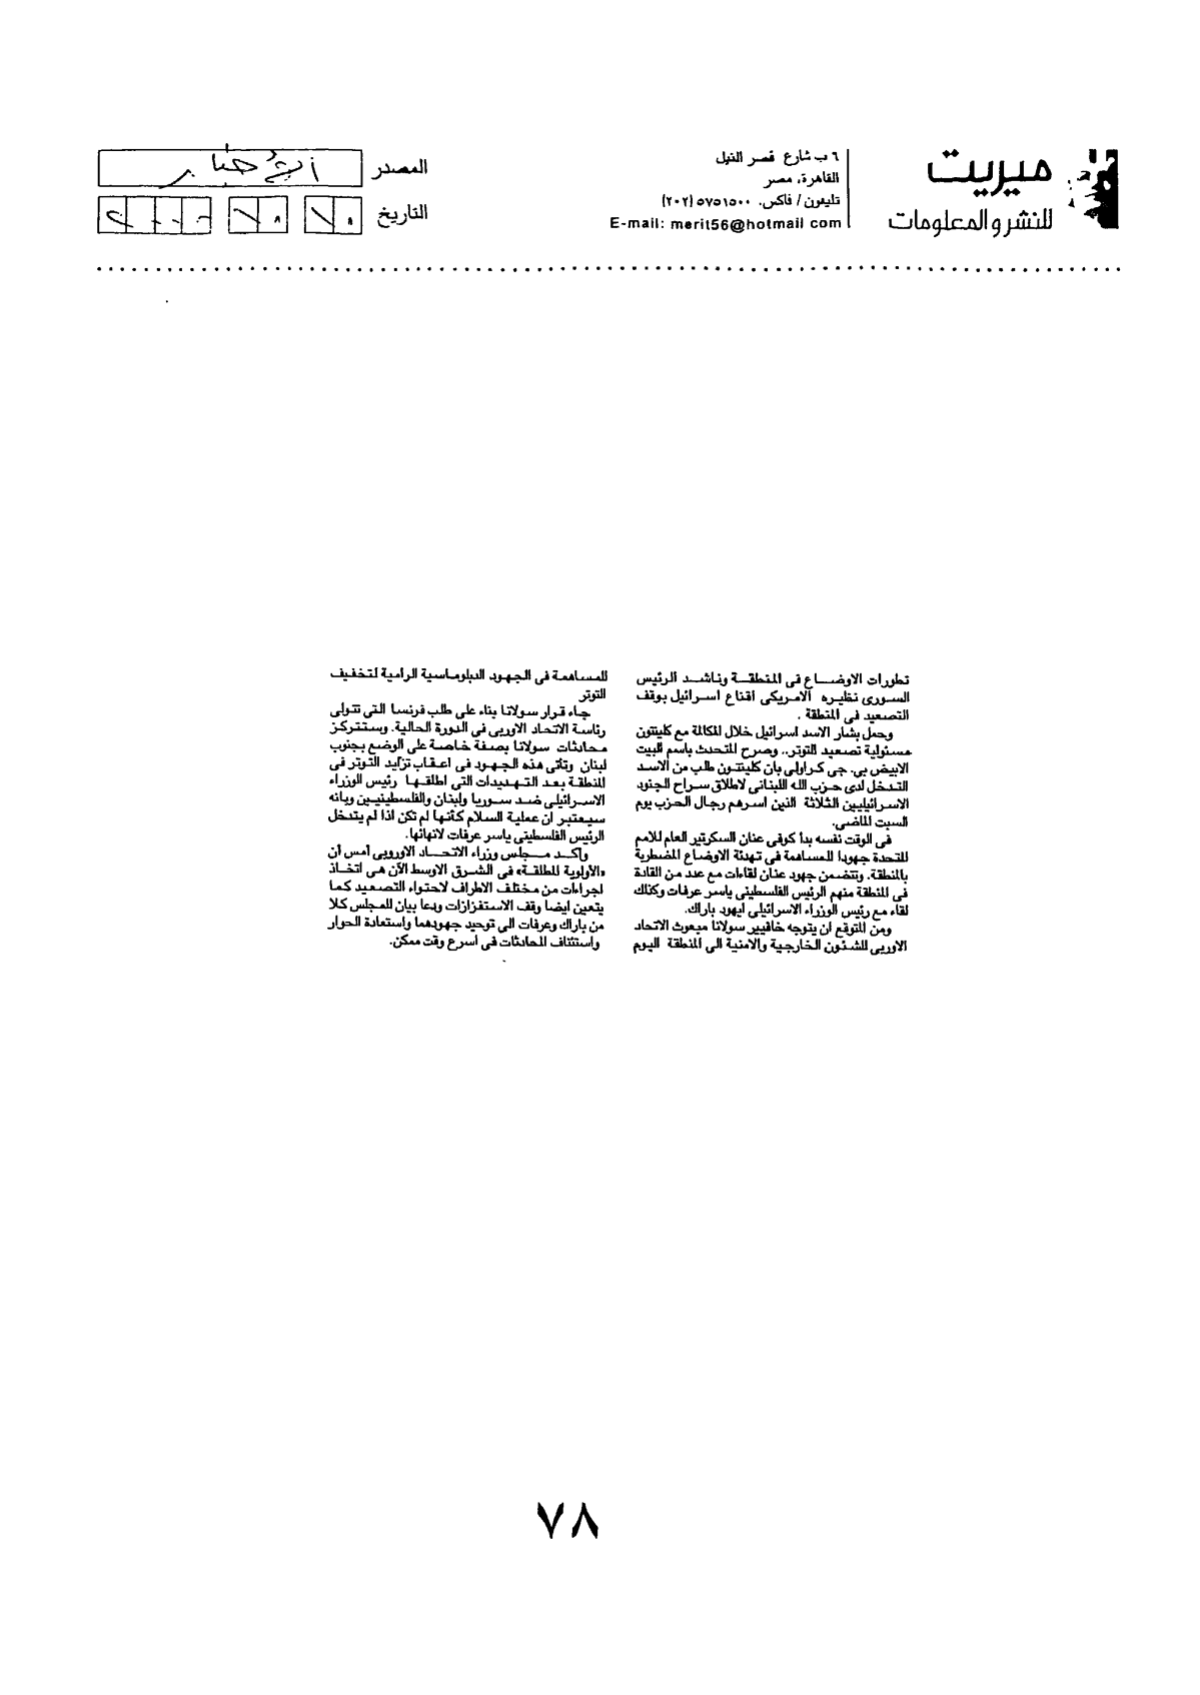 ميريت
للنشر والمعلومات
٦ ب شارع قصر النيل
القاهرة، مصر
تليفون / فاكس. ٥٧٥١٥٠٠ (٢٠٢)
E-mail: merit56@hotmail com
المصدر الأخبار
التاريخ
تطورات الاوضاع فى المنطقة وناشد الرئيس
السورى نظيره الامريكى اقناع اسرائيل بوقف
التصعيد فى المنطقة .
وحمل بشار الاسد اسرائيل خلال المكالمة مع كلينتون
مسئولية تصعيد التوتر.. وصرح المتحدث باسم البيت
الابيض بى. جى كراولى بان كلينتون طلب من الاسد
التدخل لدى حزب الله اللبنانى لاطلاق سراح الجنود
الاسرائيليين الثلاثة الذين اسرهم رجال الحزب يوم
السبت الماضى.
فى الوقت نفسه بدأ كوفى عنان السكرتير العام للامم
المتحدة جهودا للمساهمة فى تهدئة الاوضاع المضطربة
بالمنطقة. وتتضمن جهود عنان لقاءات مع عدد من القادة
فى المنطقة منهم الرئيس الفلسطينى ياسر عرفات وكذلك
لقاء مع رئيس الوزراء الاسرائيلى ايهود باراك.
ومن المتوقع ان يتوجه خافيير سولانا مبعوث الاتحاد
الاوربى للشئون الخارجية والامنية الى المنطقة اليوم
للمساهمة فى الجهود الدبلوماسية الرامية لتخفيف
التوتر
جاء قرار سولانا بناء على طلب فرنسا التى تتولى
رئاسة الاتحاد الاوربى فى الدورة الحالية. وستتركز
محادثات سولانا بصفة خاصة على الوضع بجنوب
لبنان وتأتى هذه الجهود فى اعقاب تزايد التوتر فى
المنطقة بعد التهديدات التى اطلقها رئيس الوزراء
الاسرائيلى ضد سوريا ولبنان والفلسطينيين وبانه
سيعتبر ان عملية السلام كأنها لم تكن اذا لم يتدخل
الرئيس الفلسطينى ياسر عرفات لانهائها.
واكد مجلس وزراء الاتحاد الاوروبى أمس أن
«الأولوية المطلقة» فى الشرق الاوسط الآن هى اتخاذ
اجراءات من مختلف الاطراف لاحتواء التصعيد كما
يتعين ايضا وقف الاستفزازات ودعا بيان المجلس كلا
من باراك وعرفات الى توحيد جهودهما واستعادة الحوار
واستئناف المحادثات فى اسرع وقت ممكن.
٧٨